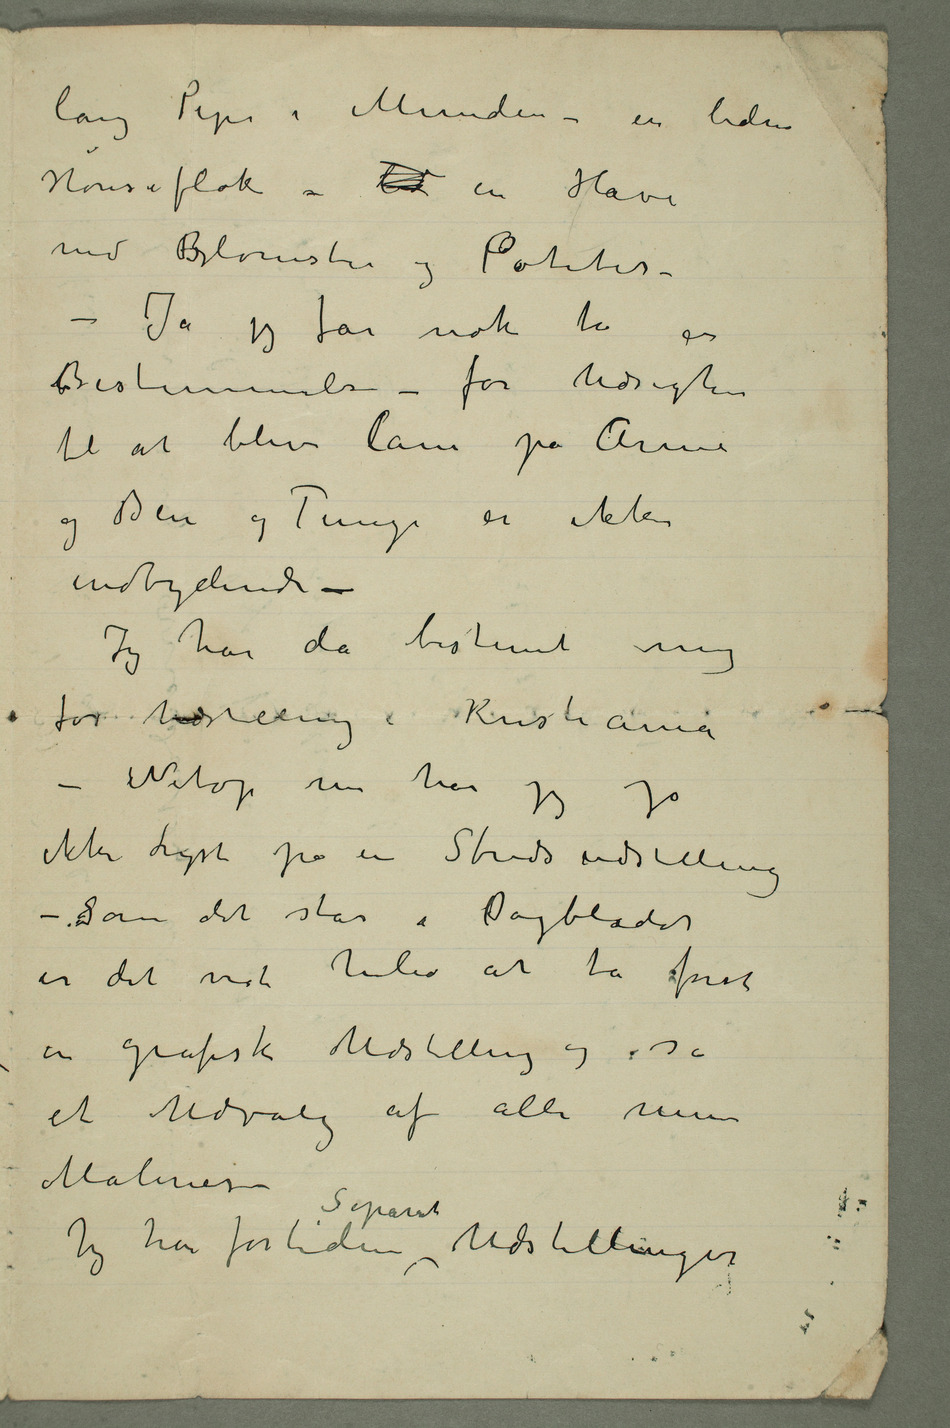 lang Pipe i Munden – en liden
Hønseflok – en Have
med Blomster og Poteter –
– Ja jeg får nok ta en
Bestemmelse – for Udsigten
til at blive lam på Arme
og Ben og Tunge er ikke
indbydende –
Jeg har da bestemt mig
for Udstilling i Kristiania
– Netop nu har jeg jo
ikke Lyst på en Stridsudstilling
– Som det står i Dagbladet
er det vist heller at ta først
en grafisk Udstilling og så
et Udvalg af alle mine
Malerier –
Jeg har fortiden Separat Udstillinger